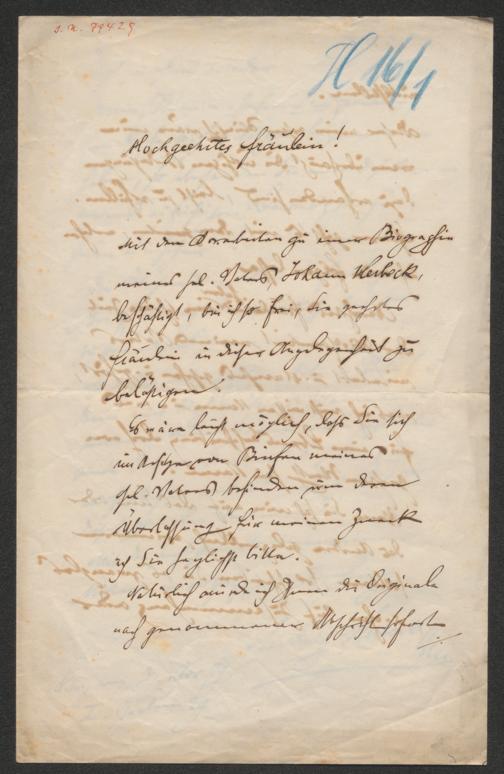 J. N. 79429
H 16/1
Hochgeehrtes Fräulein!
Mit den Vorarbeiten zu einer Biographie
meines sel. Vaters Johann Herbeck,
beschäftigt, bin ich so frei, Sie geehrtes
Fräulein in dieser Angelegenheit zu
belästigen.
Es wäre leicht möglich, daß Sie sich
im Besitze von Briefen meines
sel. Vaters befinden um deren
Überlassung für meinen Zweck
ich Sie höflichst bitte.
Natürlich würde ich Ihnen die Originale
nach genommener Abschrift sofort